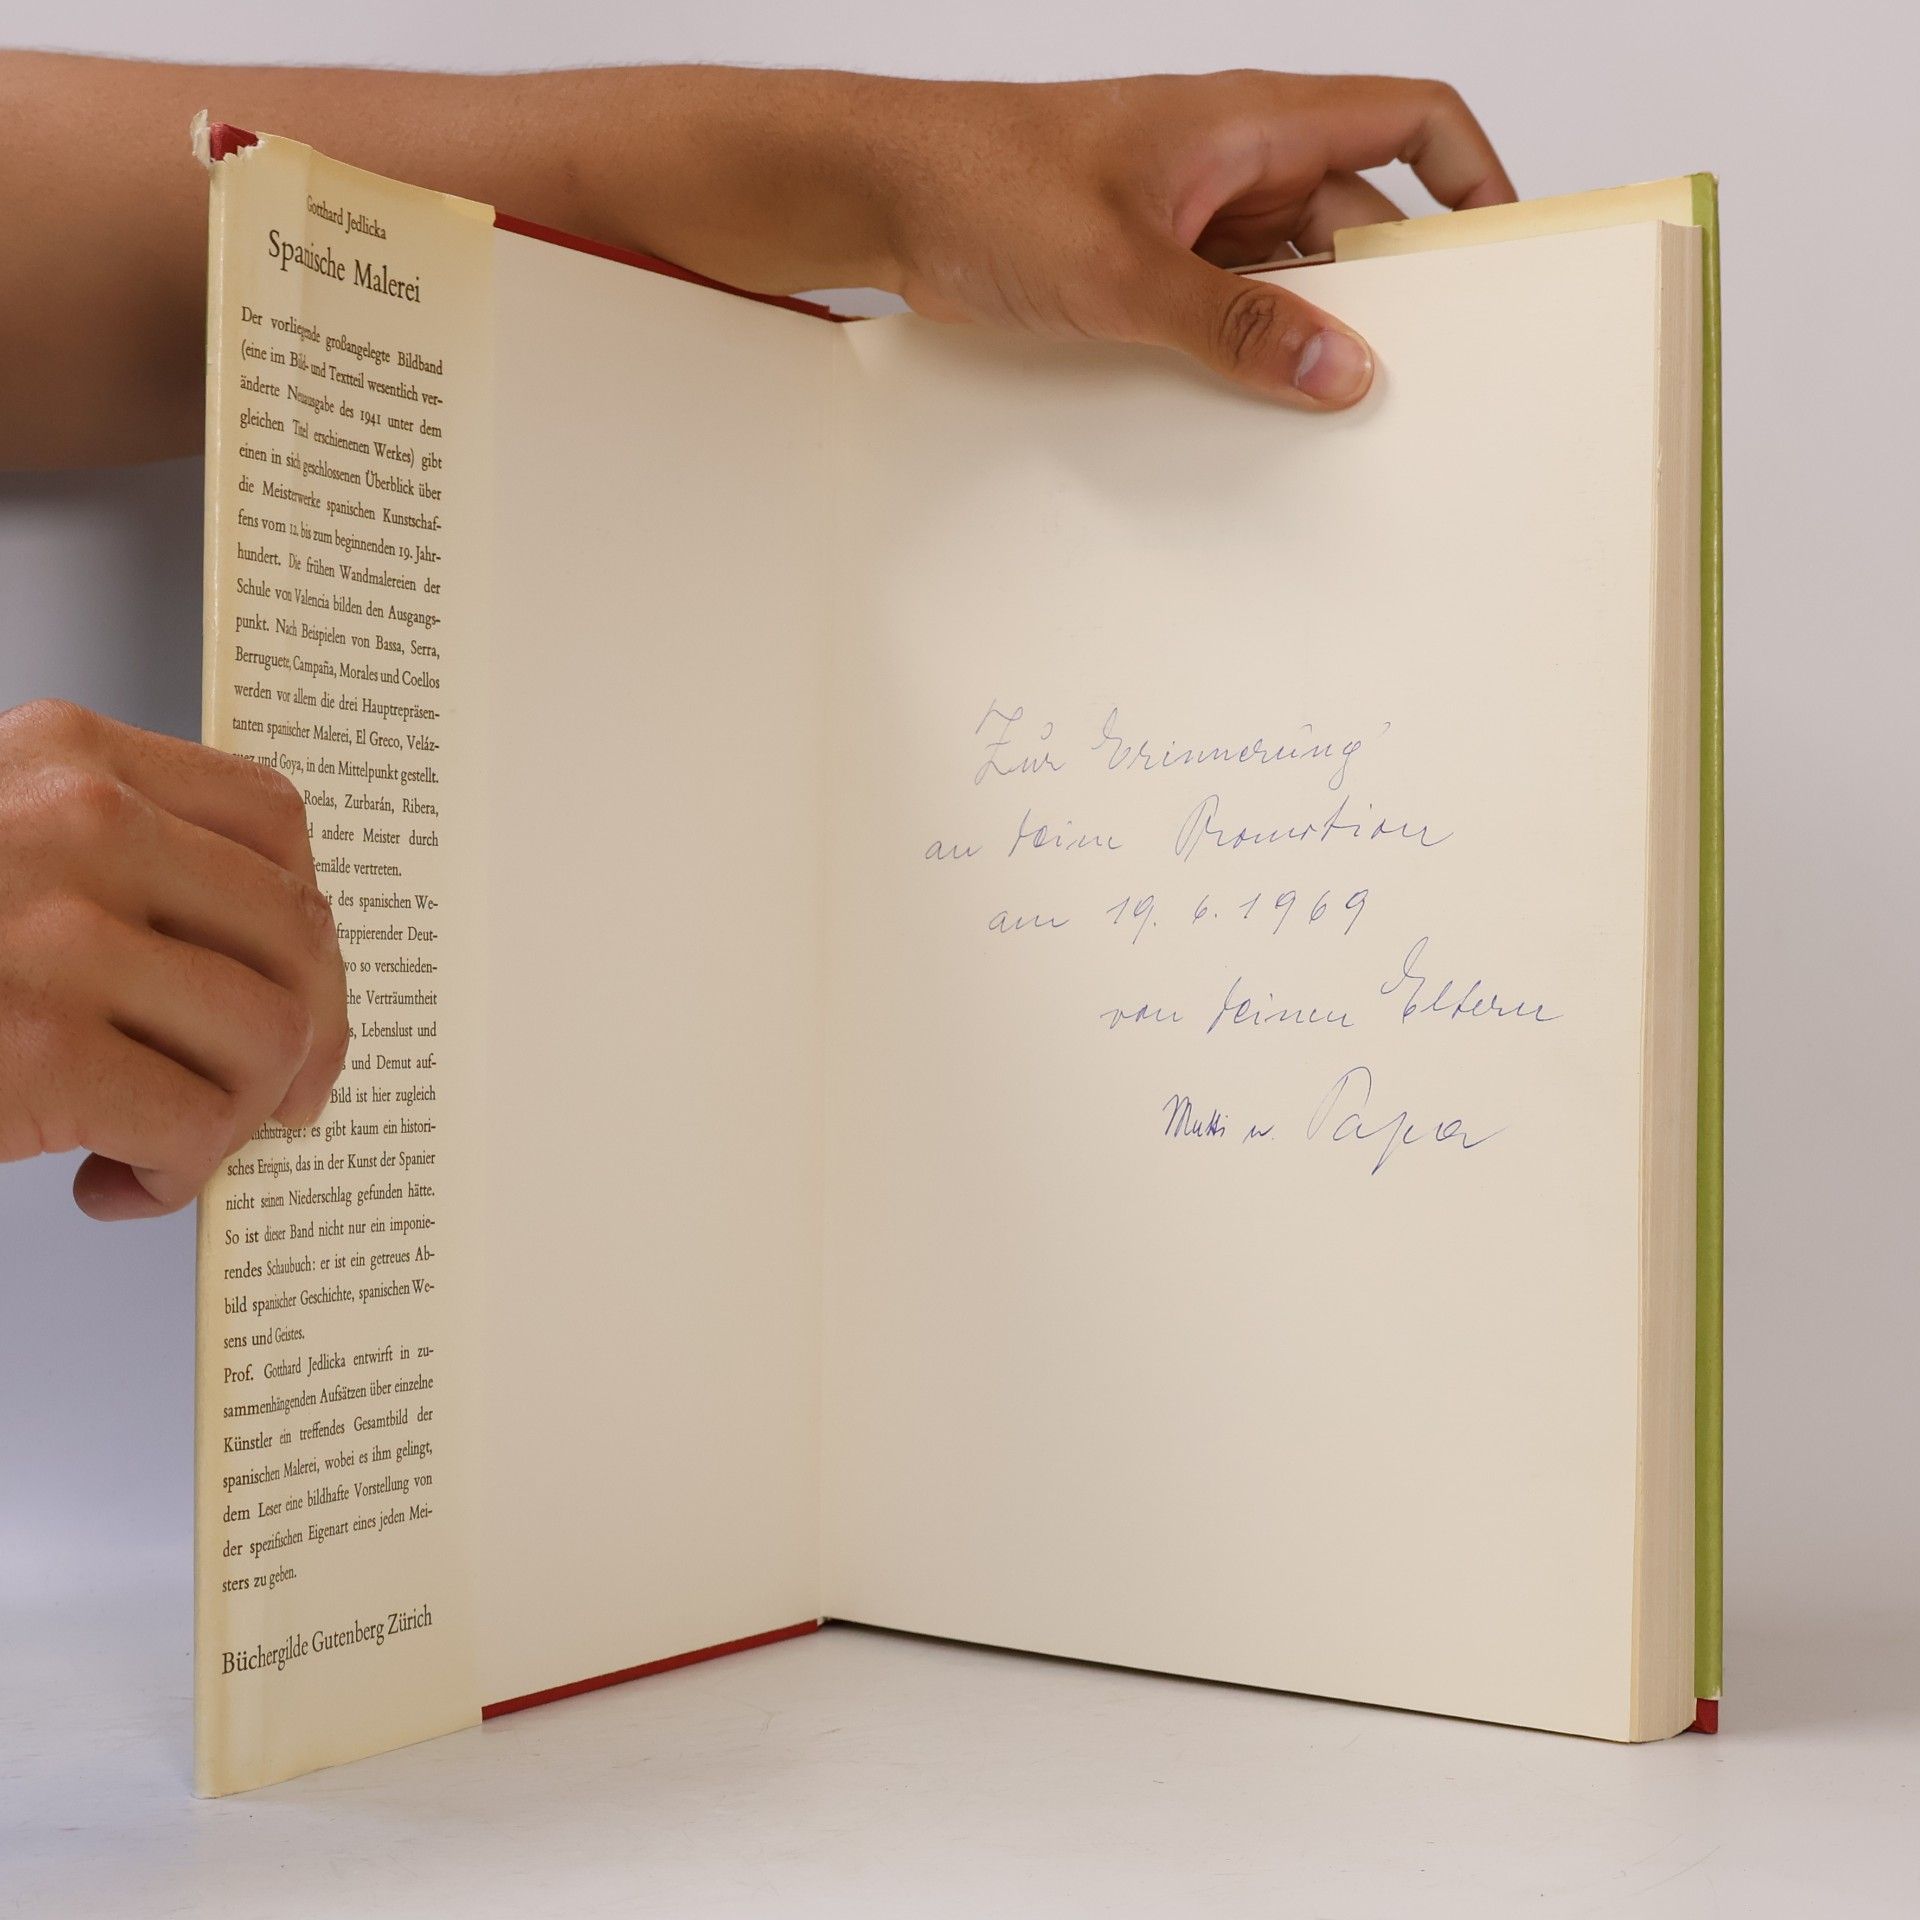 Gotthard Jedlicka
Spanische Malerei
Der vorliegende großangelegte Bildband
(eine im Bild- und Textteil wesentlich ver-
änderte Neuausgabe des 1941 unter dem
gleichen Titel erschienenen Werkes) gibt
einen in sich geschlossenen Überblick über
die Meisterwerke spanischen Kunstschaf-
fens vom 12. bis zum beginnenden 19. Jahr-
hundert. Die frühen Wandmalereien der
Schule von Valencia bilden den Ausgangs-
punkt. Nach Beispielen von Bassa, Serra,
Berruguete, Campaña, Morales und Coellos
werden vor allem die drei Hauptrepräsen-
tanten spanischer Malerei, El Greco, Veláz-
quez und Goya, in den Mittelpunkt gestellt.
Roelas, Zurbarán, Ribera,
andere Meister durch
Gemälde vertreten.
des spanischen We-
frappierender Deut-
wo so verschieden-
Verträumtheit
Lebenslust und
und Demut auf-
Bild ist hier zugleich
es gibt kaum ein histori-
sches Ereignis, das in der Kunst der Spanier
nicht seinen Niederschlag gefunden hätte.
So ist dieser Band nicht nur ein imponie-
rendes Schaubuch: er ist ein getreues Ab-
bild spanischer Geschichte, spanischen We-
sens und Geistes.
Prof. Gotthard Jedlicka entwirft in zu-
sammenhängenden Aufsätzen über einzelne
Künstler ein treffendes Gesamtbild der
spanischen Malerei, wobei es ihm gelingt,
dem Leser eine bildhafte Vorstellung von
der spezifischen Eigenart eines jeden Mei-
sters zu geben.
Büchergilde Gutenberg Zürich
Zur Erinnerung
an deine Promotion
am 19. 6. 1969
von deinen Eltern
Mutti u. Papa